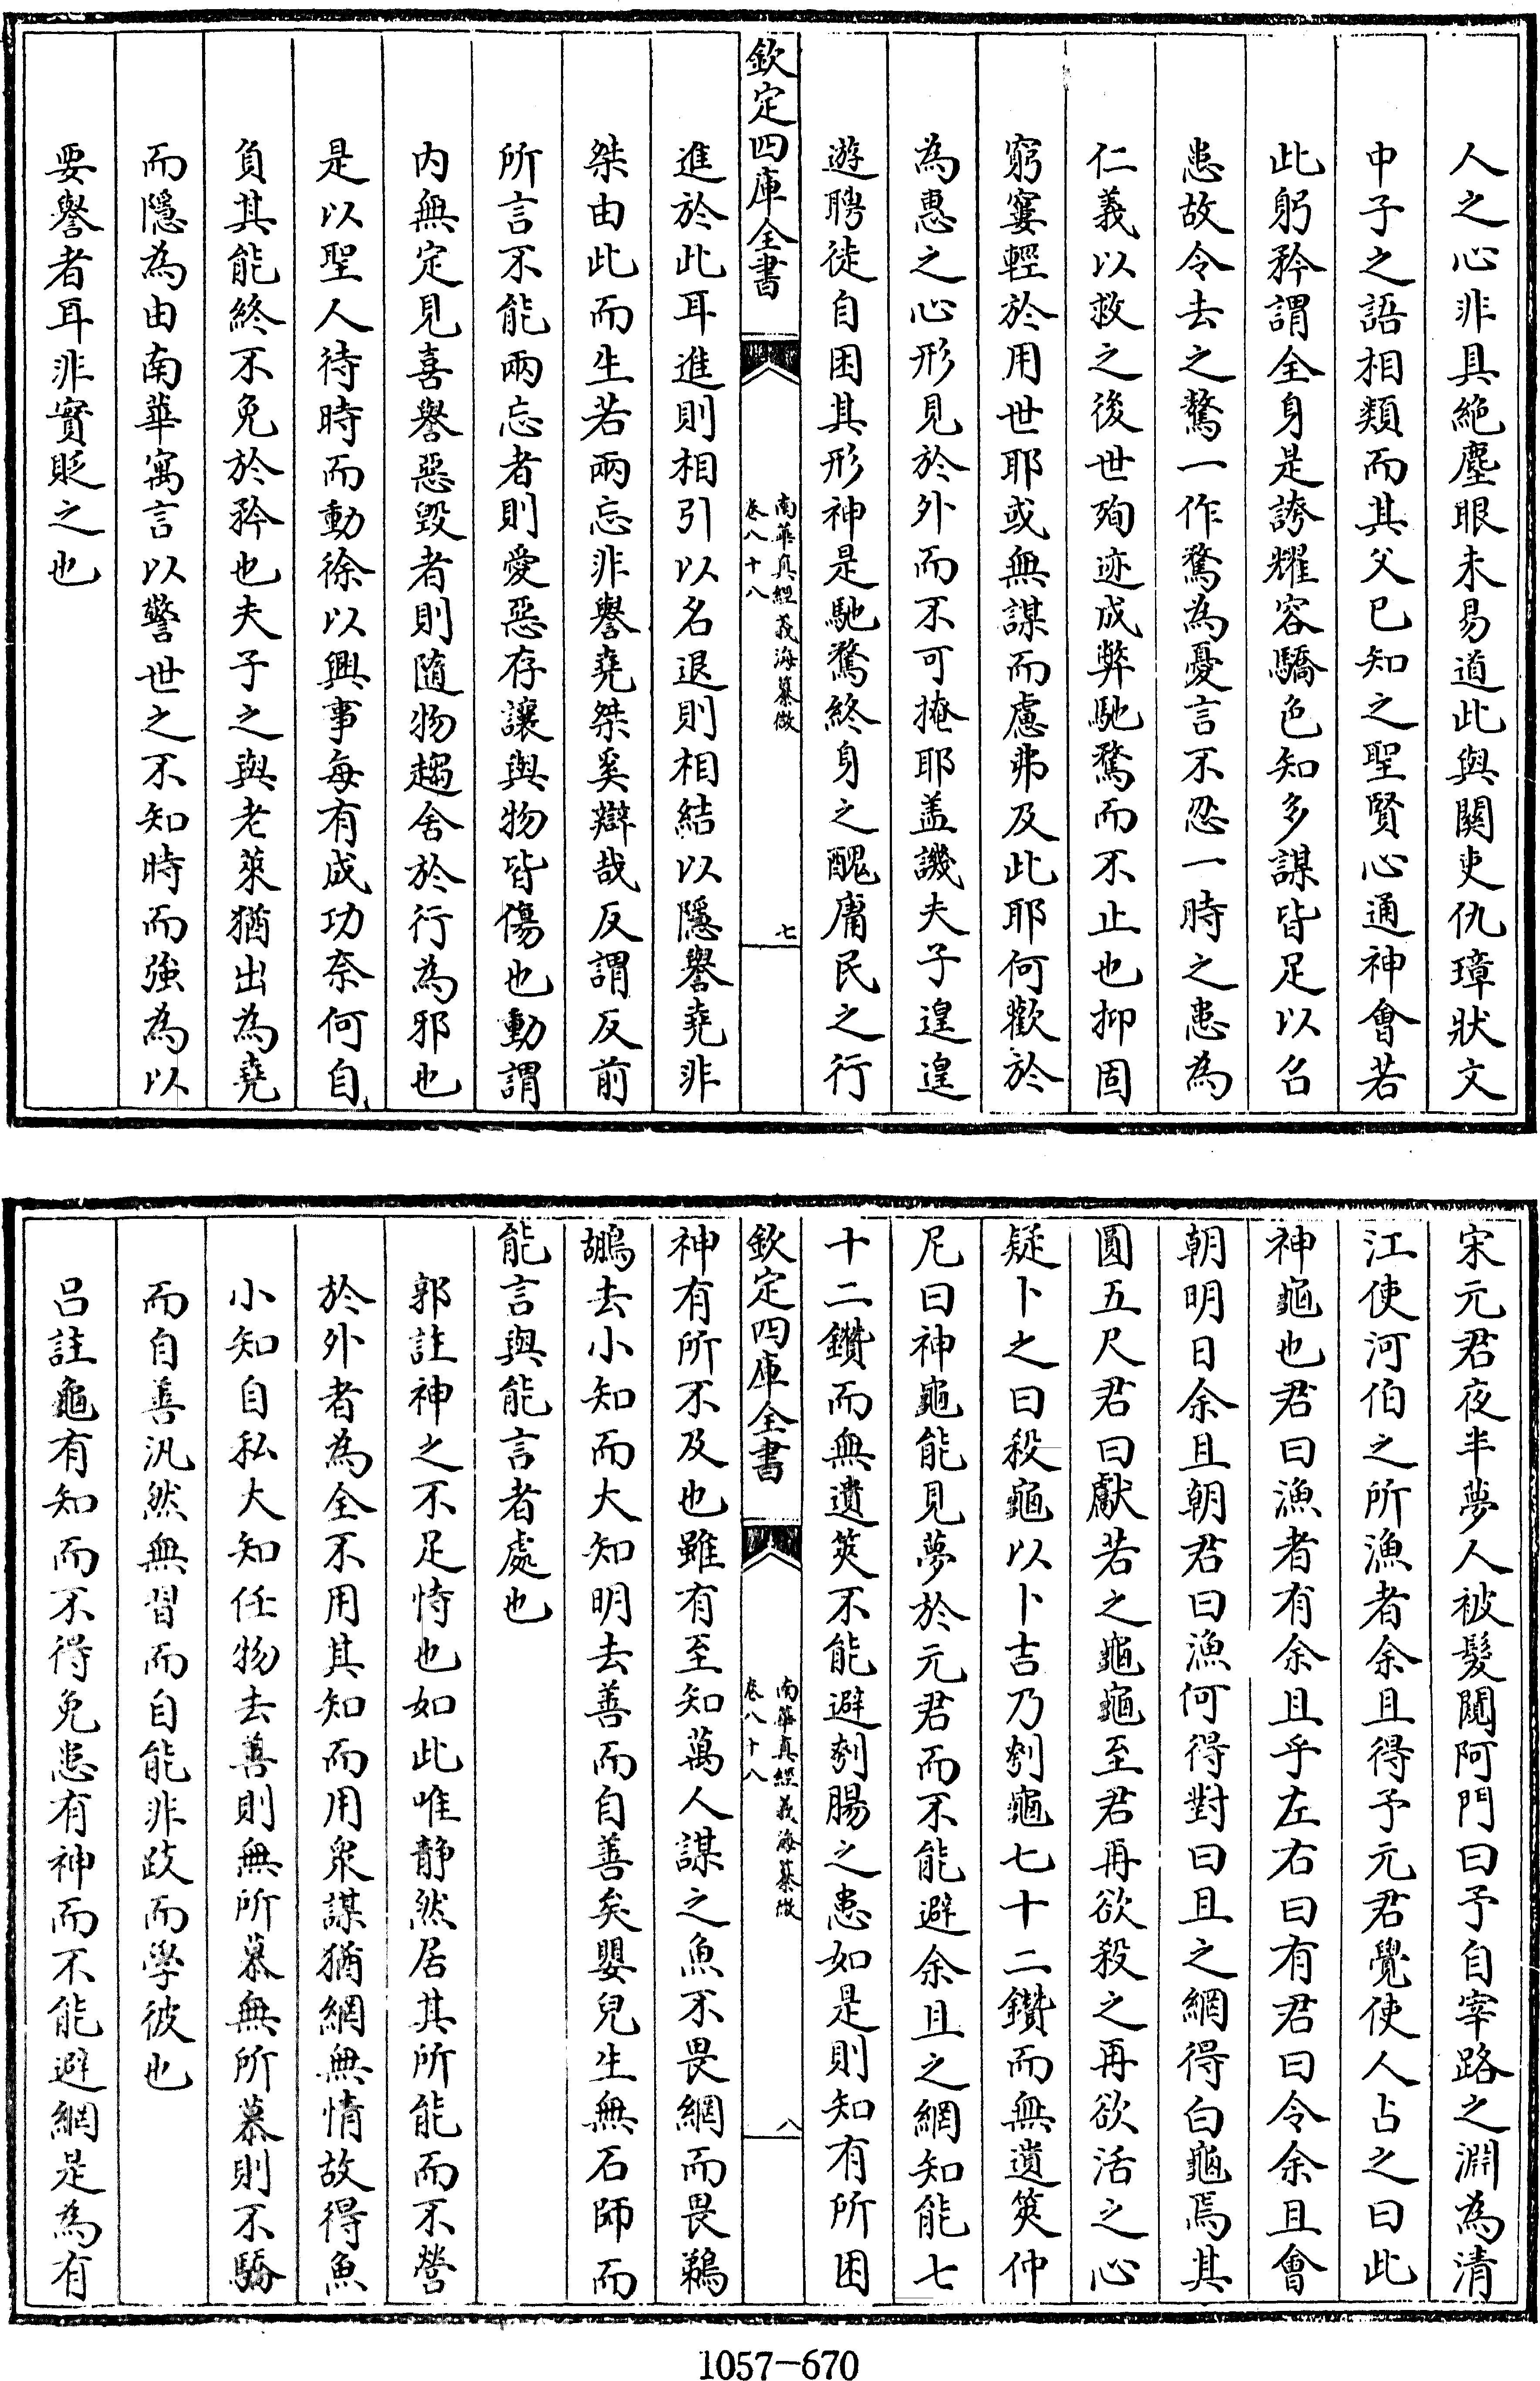 人之心非具絶塵眼未易道此與關吏仇璋狀文
中子之語相類而其父已知之聖賢心通神會若
此躬矜謂全身是誇耀容驕色知多謀皆足以召
患故令去之驁一作騖為憂言不忍一時之患為
仁義以救之後世殉迹成弊馳騖而不止也抑固
窮窶輕於用世耶或無謀而慮弗及此耶何歡於
為惠之心形見於外而不可掩耶盖譏夫子遑遑
遊聘徒自困其形神是馳騖終身之醜庸民之行
欽定四庫全書
南華真經義海纂微
卷八十八
七
進於此耳進則相引以名退則相結以隱譽堯非
桀由此而生若兩忘非譽堯桀奚辯哉反謂反前
所言不能兩忘者則愛惡存讓與物皆傷也動謂
内無定見喜譽惡毀者則隨物趨舍於行為邪也
是以聖人待時而動徐以興事每有成功奈何自
負其能終不免於矜也夫子之與老萊猶出為堯
而隱為由南華寓言以警世之不知時而強為以
要譽者耳非實貶之也
宋元君夜半夢人被髮闚阿門曰予自宰路之淵為清
江使河伯之所漁者余且得予元君覺使人占之曰此
神龜也君曰漁者有余且乎左右曰有君曰令余且會
朝明日余且朝君曰漁何得對曰且之網得白龜焉其
圓五尺君曰獻若之龜龜至君再欲殺之再欲活之心
疑卜之曰殺龜以卜吉乃刳龜七十二鑽而無遺筴仲
尼曰神龜能見夢於元君而不能避余且之網知能七
十二鑽而無遺筴不能避刳腸之患如是則知有所困
欽定四庫全書
南華真經義海纂微
卷八十八
八
神有所不及也雖有至知萬人謀之魚不畏網而畏鵜
鶘去小知而大知明去善而自善矣嬰兒生無石師而
能言與能言者處也
郭註神之不足恃也如此唯静然居其所能而不營
於外者為全不用其知而用衆謀猶網無情故得魚
小知自私大知任物去善則無所慕無所慕則不驕
而自善汎然無習而自能非跂而學彼也
吕註龜有知而不得免患有神而不能避網是為有
1057—670